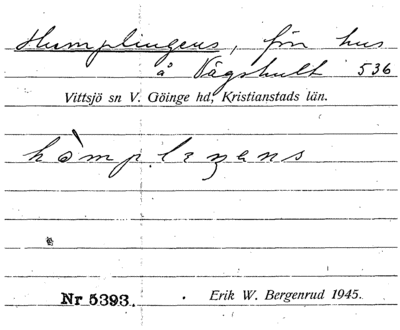 Humplingens, för hus
å Vågshult 536
Vittsjö sn V. Göinge hd, Kristianstads län.
hòmpleŋens
Nr 5393. Erik W. Bergenrud 1945.